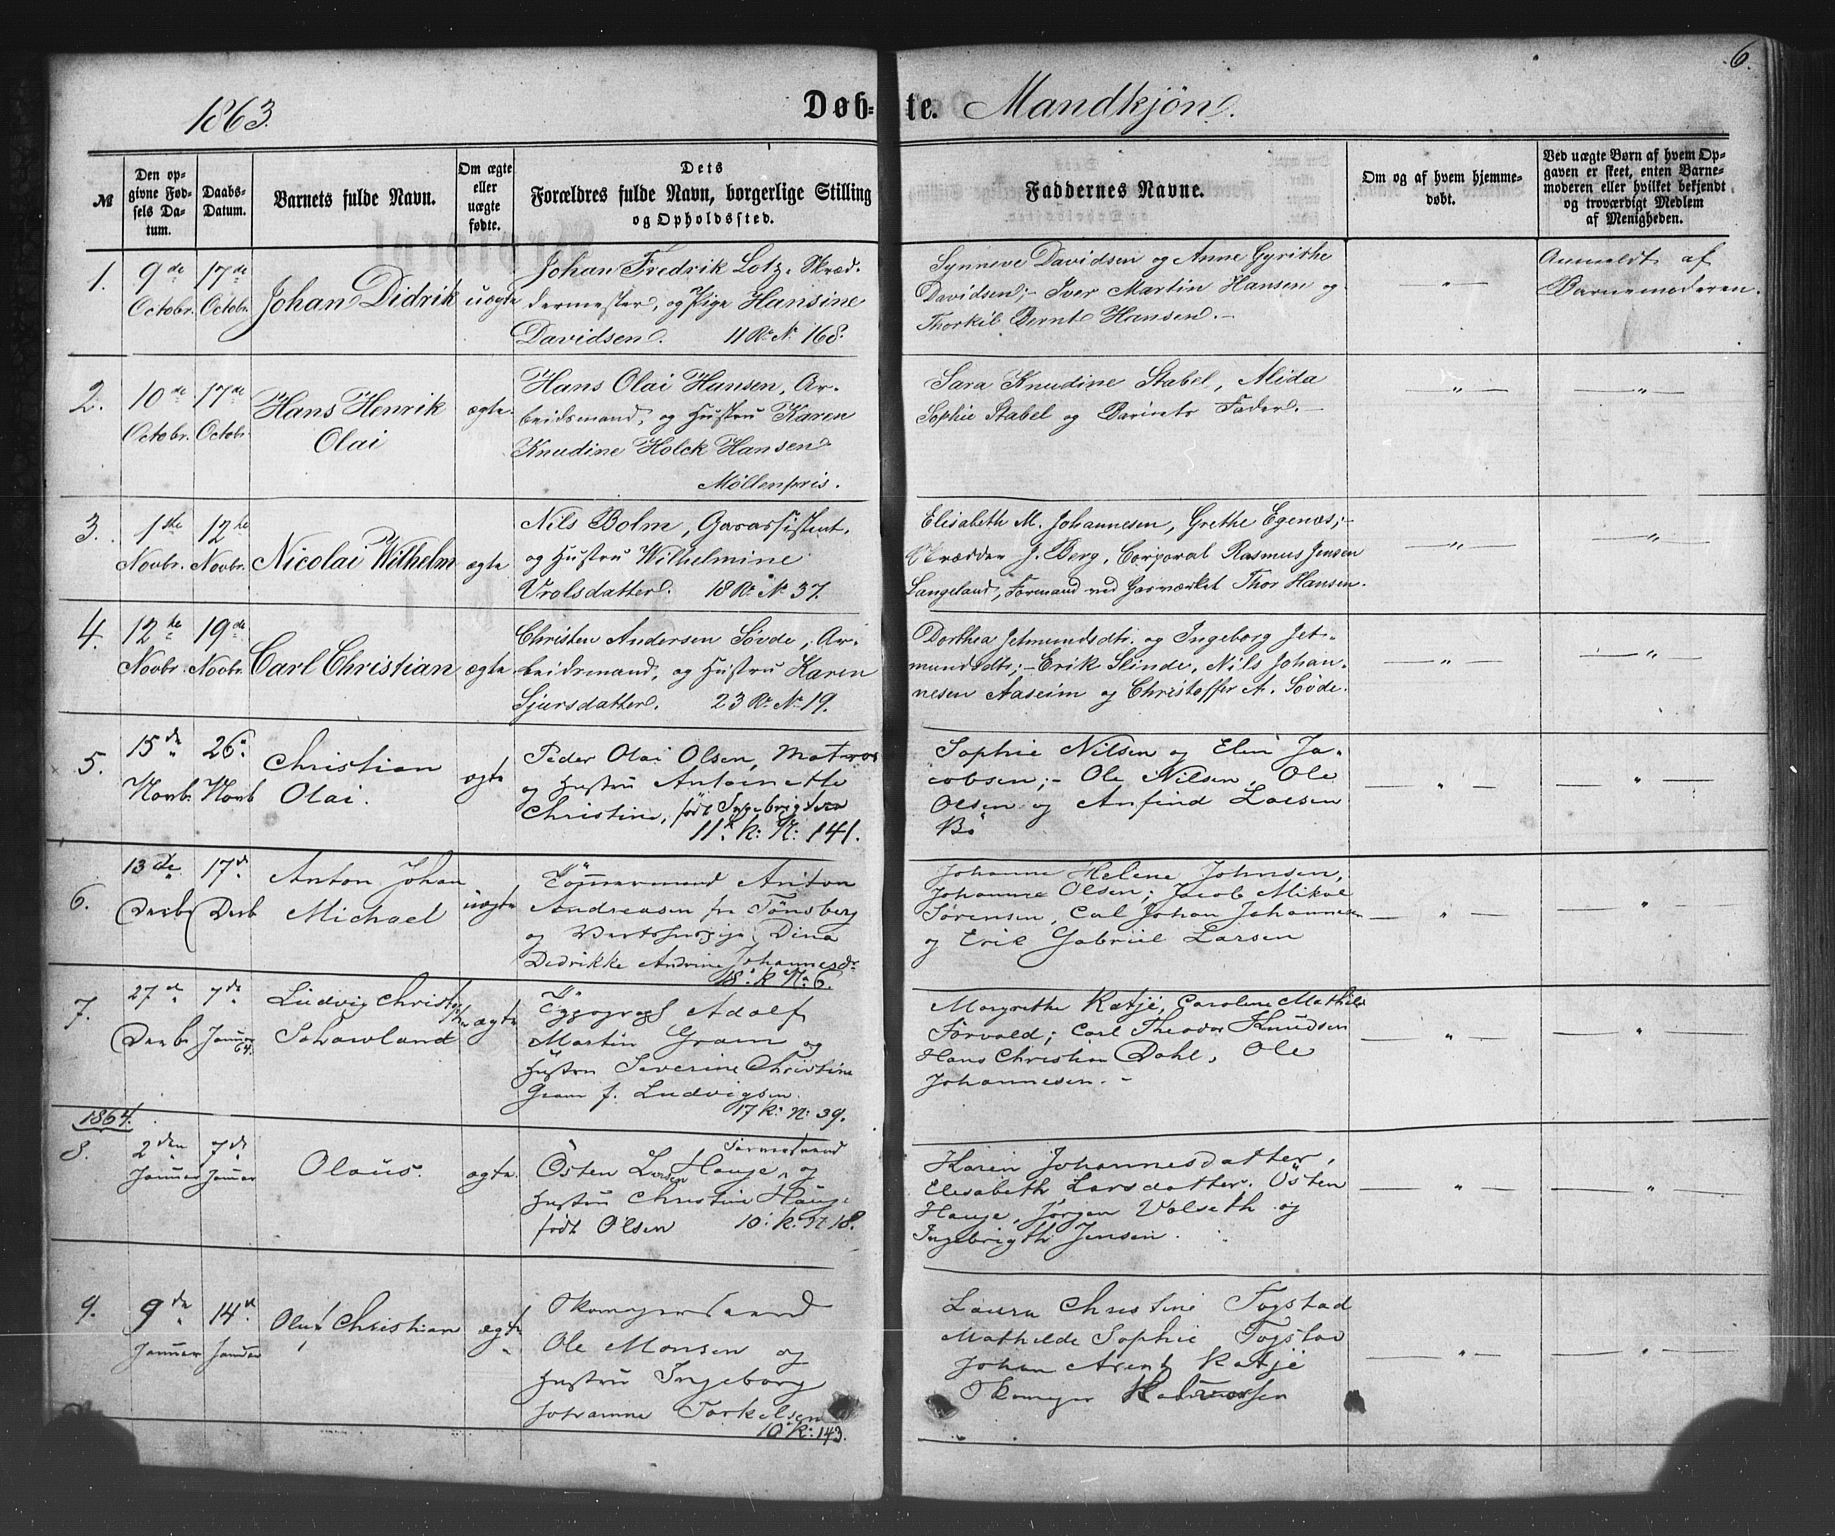 6.
1863.
Døb-te. Mandkjön.
№
Den op-
givne Fød-
sels Da-
tum.
Daabs-
Datum.
Barnets fulde Navn.
Om ægte
eller
uægte
fødte.
Dets
Forældres fulde Navn, borgerlige Stilling
og Opholdssted.
Faddernes Navne.
Om og af hvem hjemme-
døbt.
Ved uægte Børn af hvem Op-
gaven er skeet, enten Barne-
moderen eller hvilket bekjendt
og troværdigt Medlem
af Menigheden.
1.
9de
Octobr.
17de
Octobr.
Johan Didrik
uægte
Johan Fredrik Lotz, Skræd-
dermester, og Pige Hansine
Davidsen. 11 R. N. 168.
Synneve Davidsen og Anne Gyrithe
Davidsen; - Iver Martin Hansen og
Thorkil Bernt Hansen. -
— " —
Anmeldt af
Barnemoderen.
2.
10de
Octobr.
17de
Octobr.
Hans Henrik
Olai
ægte.
Hans Olai Hansen, Ar-
beidsmand, og Hustru Karen
Knudine Holck Hansen
Möllenpris.
Sara Knudine Stabel, Alida
Sophie Stabel og Barnets Fader. -
— " —
— " —
3.
1ste
Novbr.
12te
Novbr.
Nicolai Wilhelm
ægte
Nils Bolm, Gasassistent,
og Hustru Wilhelmine
Vrolsdatter. 18 R. N. 37.
Elisabeth M. Johannesen, Grethe Egenæs; -
Skrædder J. Berg, Corporal Rasmus Jensen
Langeland, Formand ved Gasværket Thor Hansen.
— " —
— " —
4.
12te
Novbr.
19de
Novbr.
Carl Christian
ægte
Christen Andersen Sövde, Ar-
beidsmand, og Hustru Karen
Sjursdatter. 23 R. N. 19.
Dorthea Jetmundsdtr. og Ingeborg Jet-
mundsdtr; - Erik Slinde, Nils Johan-
nesen Aaseim og Christoffer A. Sövde.
— " —
— " —
5.
15de
Novb.
26.
Novb
Christian
Olai.
ægte
Peder Olai Olsen, Matros
og Hustru Antoinette
Christine, født Ingebrigtsen
11. R: N: 141.
Sophie Nilsen og Elin Ja-
cobsen; - Ole Nilsen, Ole
Olsen og Anfind Larsen
Bö
— " —
— " —
6.
13de
Decbr
17d
Decb
Anton Johan
Michael
uægte
Tömmermand Anton
Andreasen fra Tönsberg
og Dina
Dedrikke Andrine Johannesdr
18. R N: 6.
Johanne Helene Johnsen,
Johanne Olsen; Jacob Mikal
Sørensen, Carl Johan Johannesen
og Erik Gabriel Larsen
— " —
— " —
7.
27d
Decbr
7de
Januar
64.
Ludvig
Schowland
ægte
Typograf Adolf
Martin Gram og
Hustru Severine Christine
Gram f. Ludvigsen.
17 R: N: 39.
Margrethe Katje, Carolene Mathild
Forvald; Carl Theodor Knudsen
Hans Christian Dahl, Ole
Johannesen. -
— " —
— " —
1864.
8.
2den
Januar
7de
Januar
Olaus.
ægte.
Østen Larsen Hauje, og
Hustru Christine Hauge
født Olsen 10. R: N. 18.
Karen Johannesdatter,
Elisabeth Larsdatter. Østen
Hauje, Jørgen Volseth og
Ingebrigth Jensen.
— " —
— " —
9.
9de
Januar
14d
Januar
Christian
ægte
Skomagersvend
Ole Monsen og
Hustru Ingeborg
Johanne Torkelsen
10 R: 143.
Laura Christine Fogstad
Mathilde Sophie Fogstad
Johan Arent Katje
Skomager
— " —
— " —